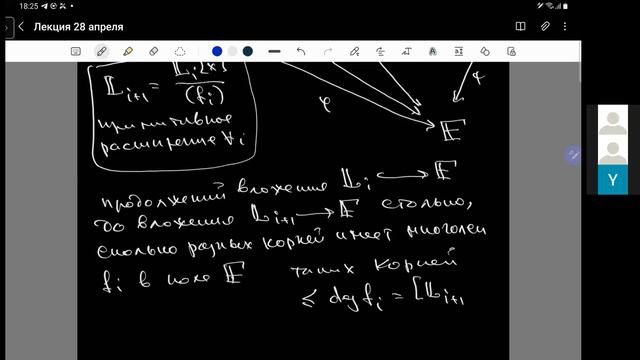 18:25
Лекция 28 апреля
𝕃ᵢ₊₁ = 𝕃ᵢ[x] / (fᵢ)
примитивное
расширение ∀i
φ
𝔼
продолжений вложения 𝕃ᵢ ⟶ 𝔼
до вложения 𝕃ᵢ₊₁ ⟶ 𝔼 столько,
сколько разных корней имеет многочлен
fᵢ в поле 𝔼 таких корней
≤ deg fᵢ = [𝕃ᵢ₊₁
Y